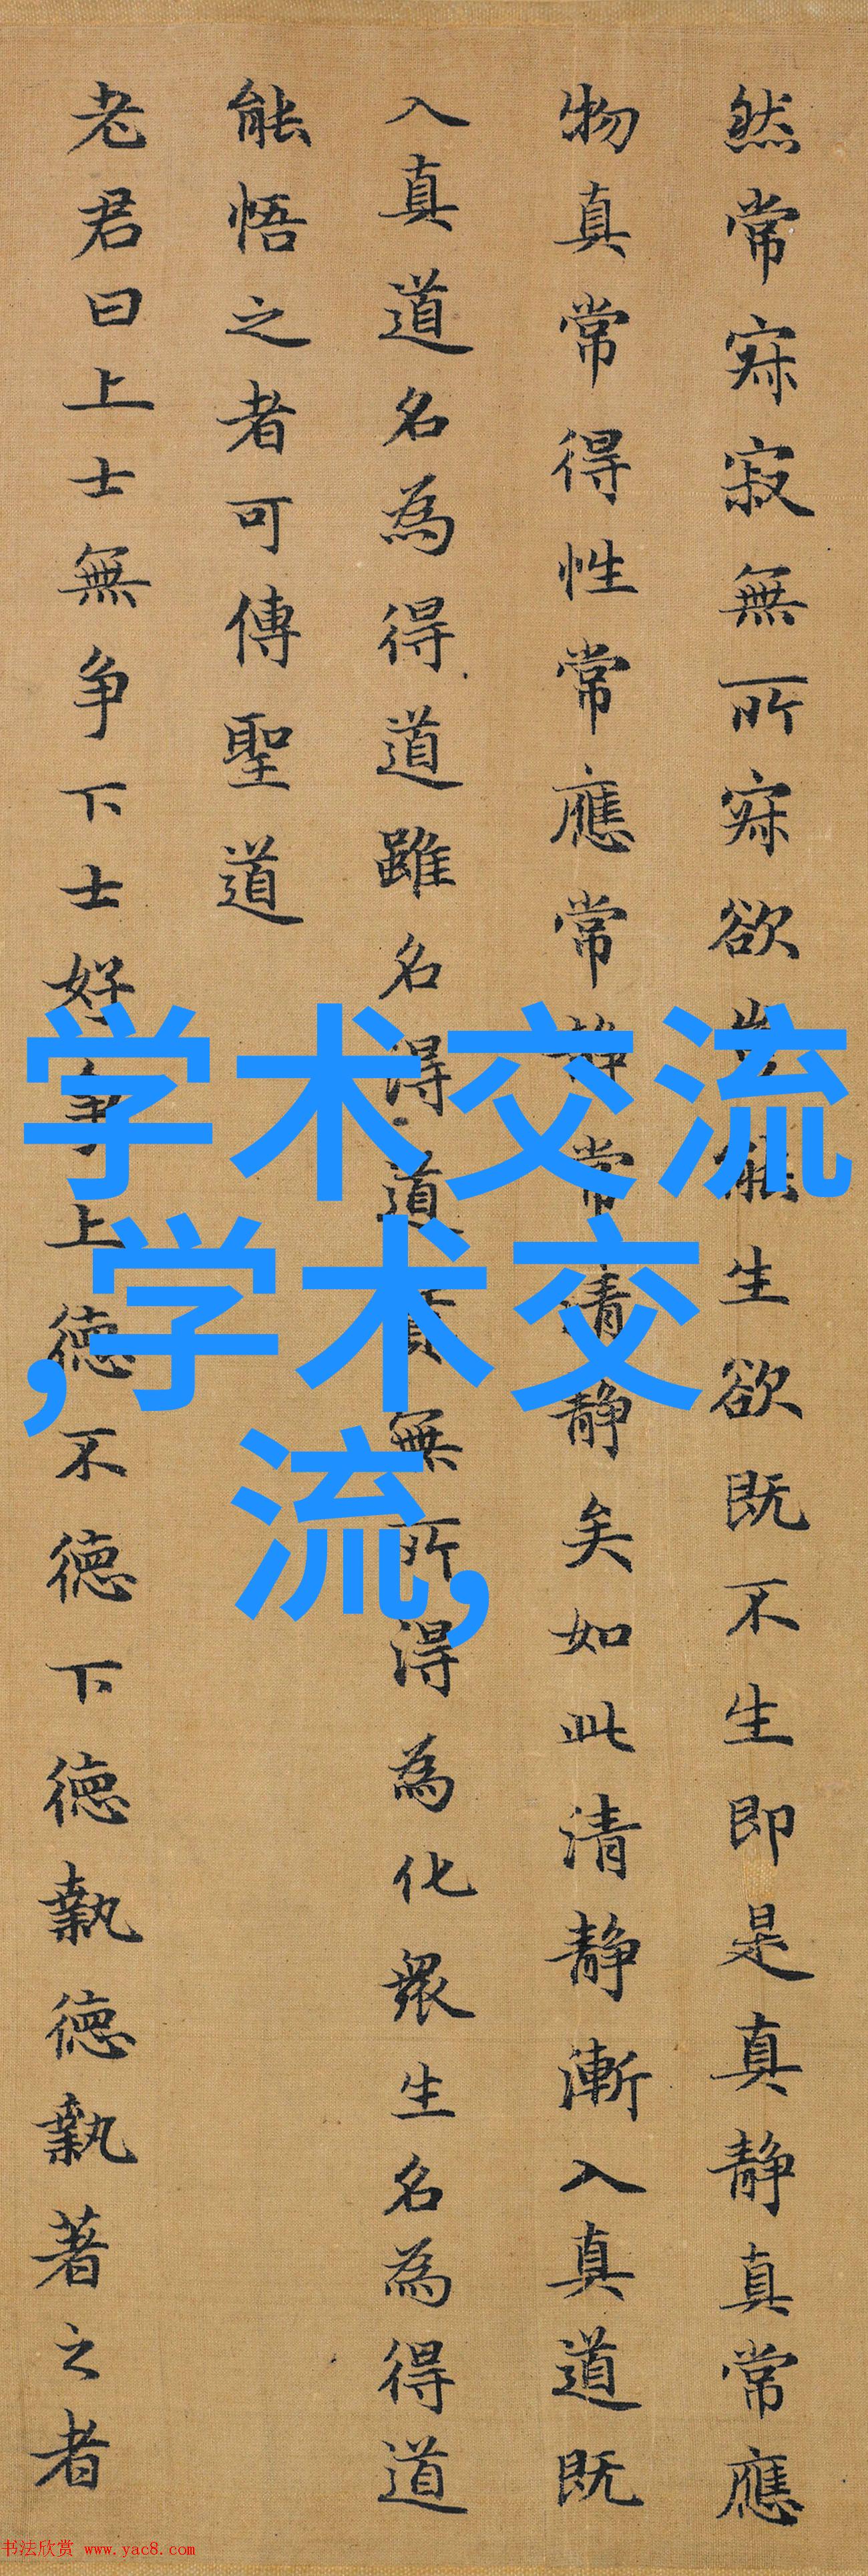 然常寂寂無所寂欲岂能生欲既不生即是真静真常應
物真常得性常應常静常清静矣如此清静漸入真道既
入真道名為得道雖名得道實無所得為化衆生名為得道
能悟之者可傳聖道
老君曰上士無争下士好争上德不德下德執德執著之者
学术交流
,学术交
流,
书法欣赏 www.yac8.com